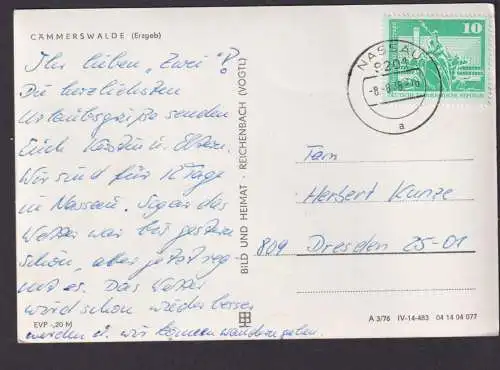 CÄMMERSWALDE (Erzgeb)
Ihr lieben "Zwei"!
Die herzlichsten
Urlaubsgrüße senden
Euch Kerstin u. Eltern.
Wir sind für 12 Tage
in Nassau. Sogar das
Wetter war bis gestern
schön, aber jetzt reg-
net es. Das Wetter
wird schon wieder besser
werden u. wir können wandern gehen.
EVP -,20 M
BILD UND HEIMAT · REICHENBACH (VOGTL)
10
NASSAU
9201
a
Fam
Herbert Kunze
809 Dresden 25-01
A 3/76 IV-14-483 04 14 04 077